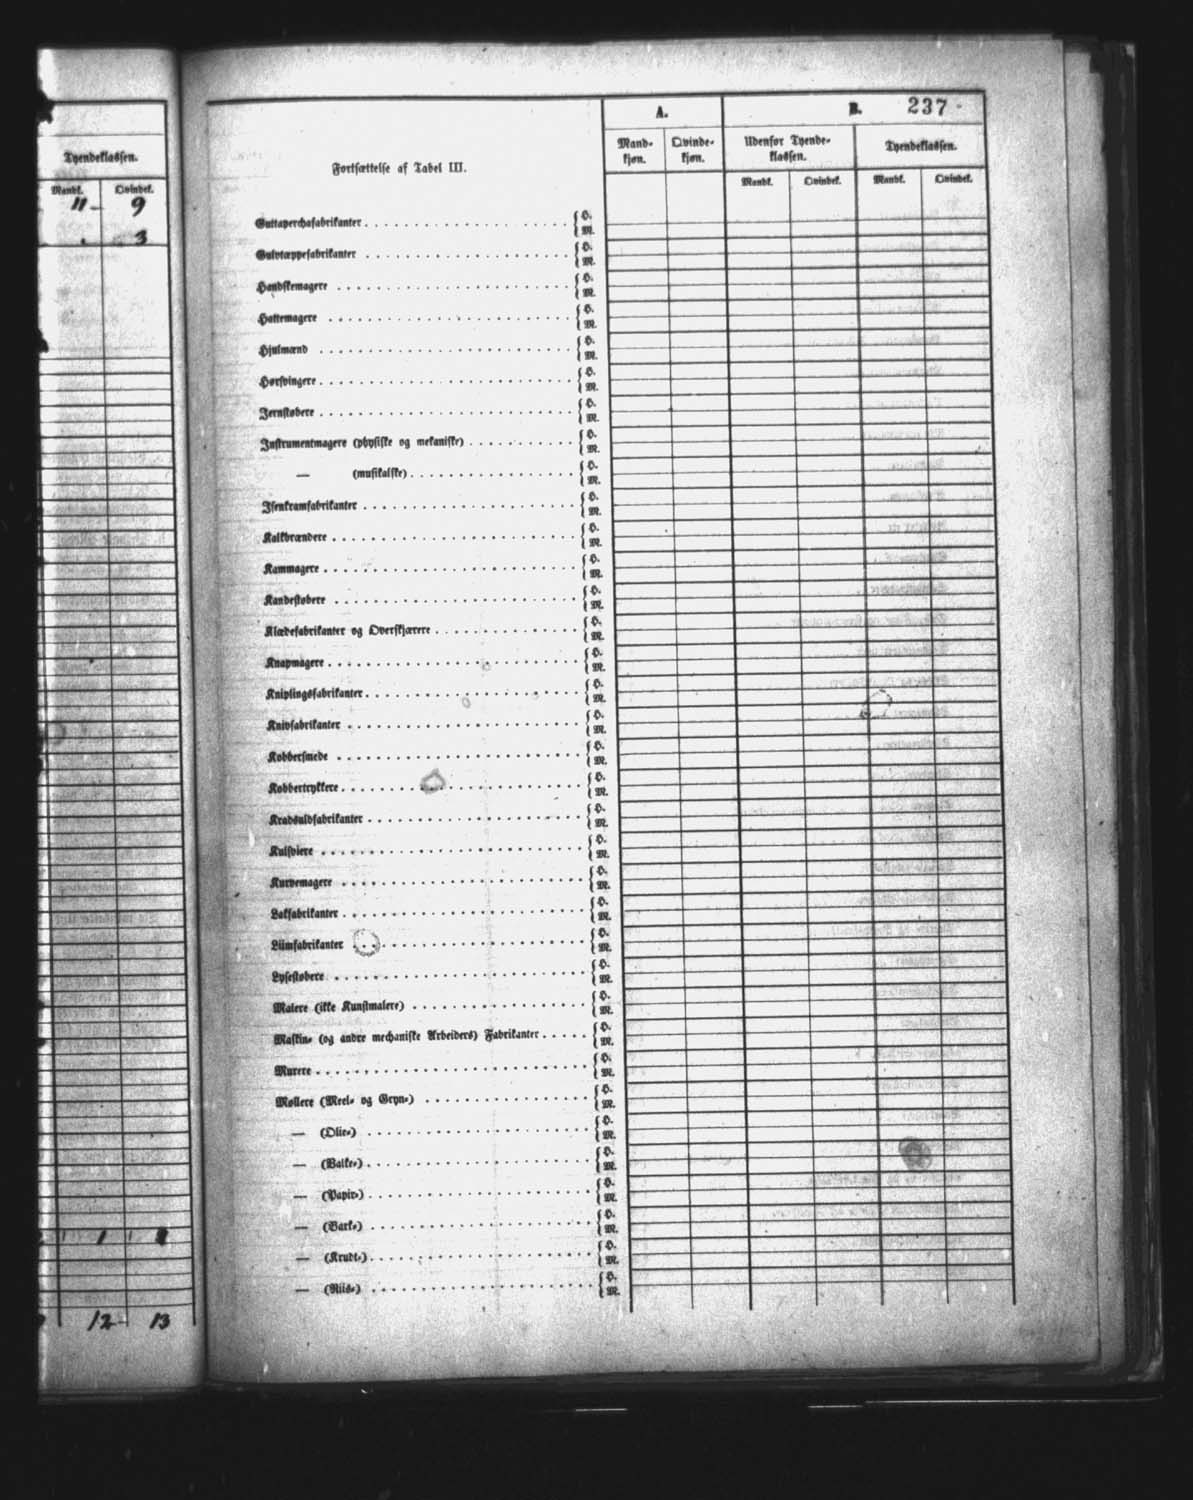 Tyendeklassen.
Mandk. Qvindek.
11 — 9
. 3
1 1
12 - 13
237
A. B.
Fortsættelse af Tabel III.
Mand- kjøn. Qvinde- kjøn. Udenfor Tyende- klassen. Tyendeklassen.
Mandk. Qvindek. Mandk. Qvindek.
Guttaperchafabrikanter { H. M.
Gulvtæppefabrikanter { H. M.
Handskemagere { H. M.
Hattemagere { H. M.
Hjulmænd { H. M.
Hørsvingere { H. M.
Jernstøbere { H. M.
Instrumentmagere (physiske og mekaniske) { H. M.
— (musikalske) { H. M.
Isenkramfabrikanter { H. M.
Kalkbrændere { H. M.
Kammagere { H. M.
Kandestøbere { H. M.
Klædefabrikanter og Overskjærere { H. M.
Knapmagere { H. M.
Kniplingsfabrikanter { H. M.
Knivfabrikanter { H. M.
Kobbersmede { H. M.
Kobbertrykkere { H. M.
Kradsuldfabrikanter { H. M.
Kulsviere { H. M.
Kurvemagere { H. M.
Lakfabrikanter { H. M.
Liimfabrikanter { H. M.
Lysestøbere { H. M.
Malere (ikke Kunstmalere) { H. M.
Maskin- (og andre mechaniske Arbeiders) Fabrikanter { H. M.
Murere { H. M.
Møllere (Meel- og Gryn-) { H. M.
— (Olie-) { H. M.
— (Valke-) { H. M.
— (Papir-) { H. M.
— (Bark-) { H. M.
— (Krudt-) { H. M.
— (Riis-) { H. M.